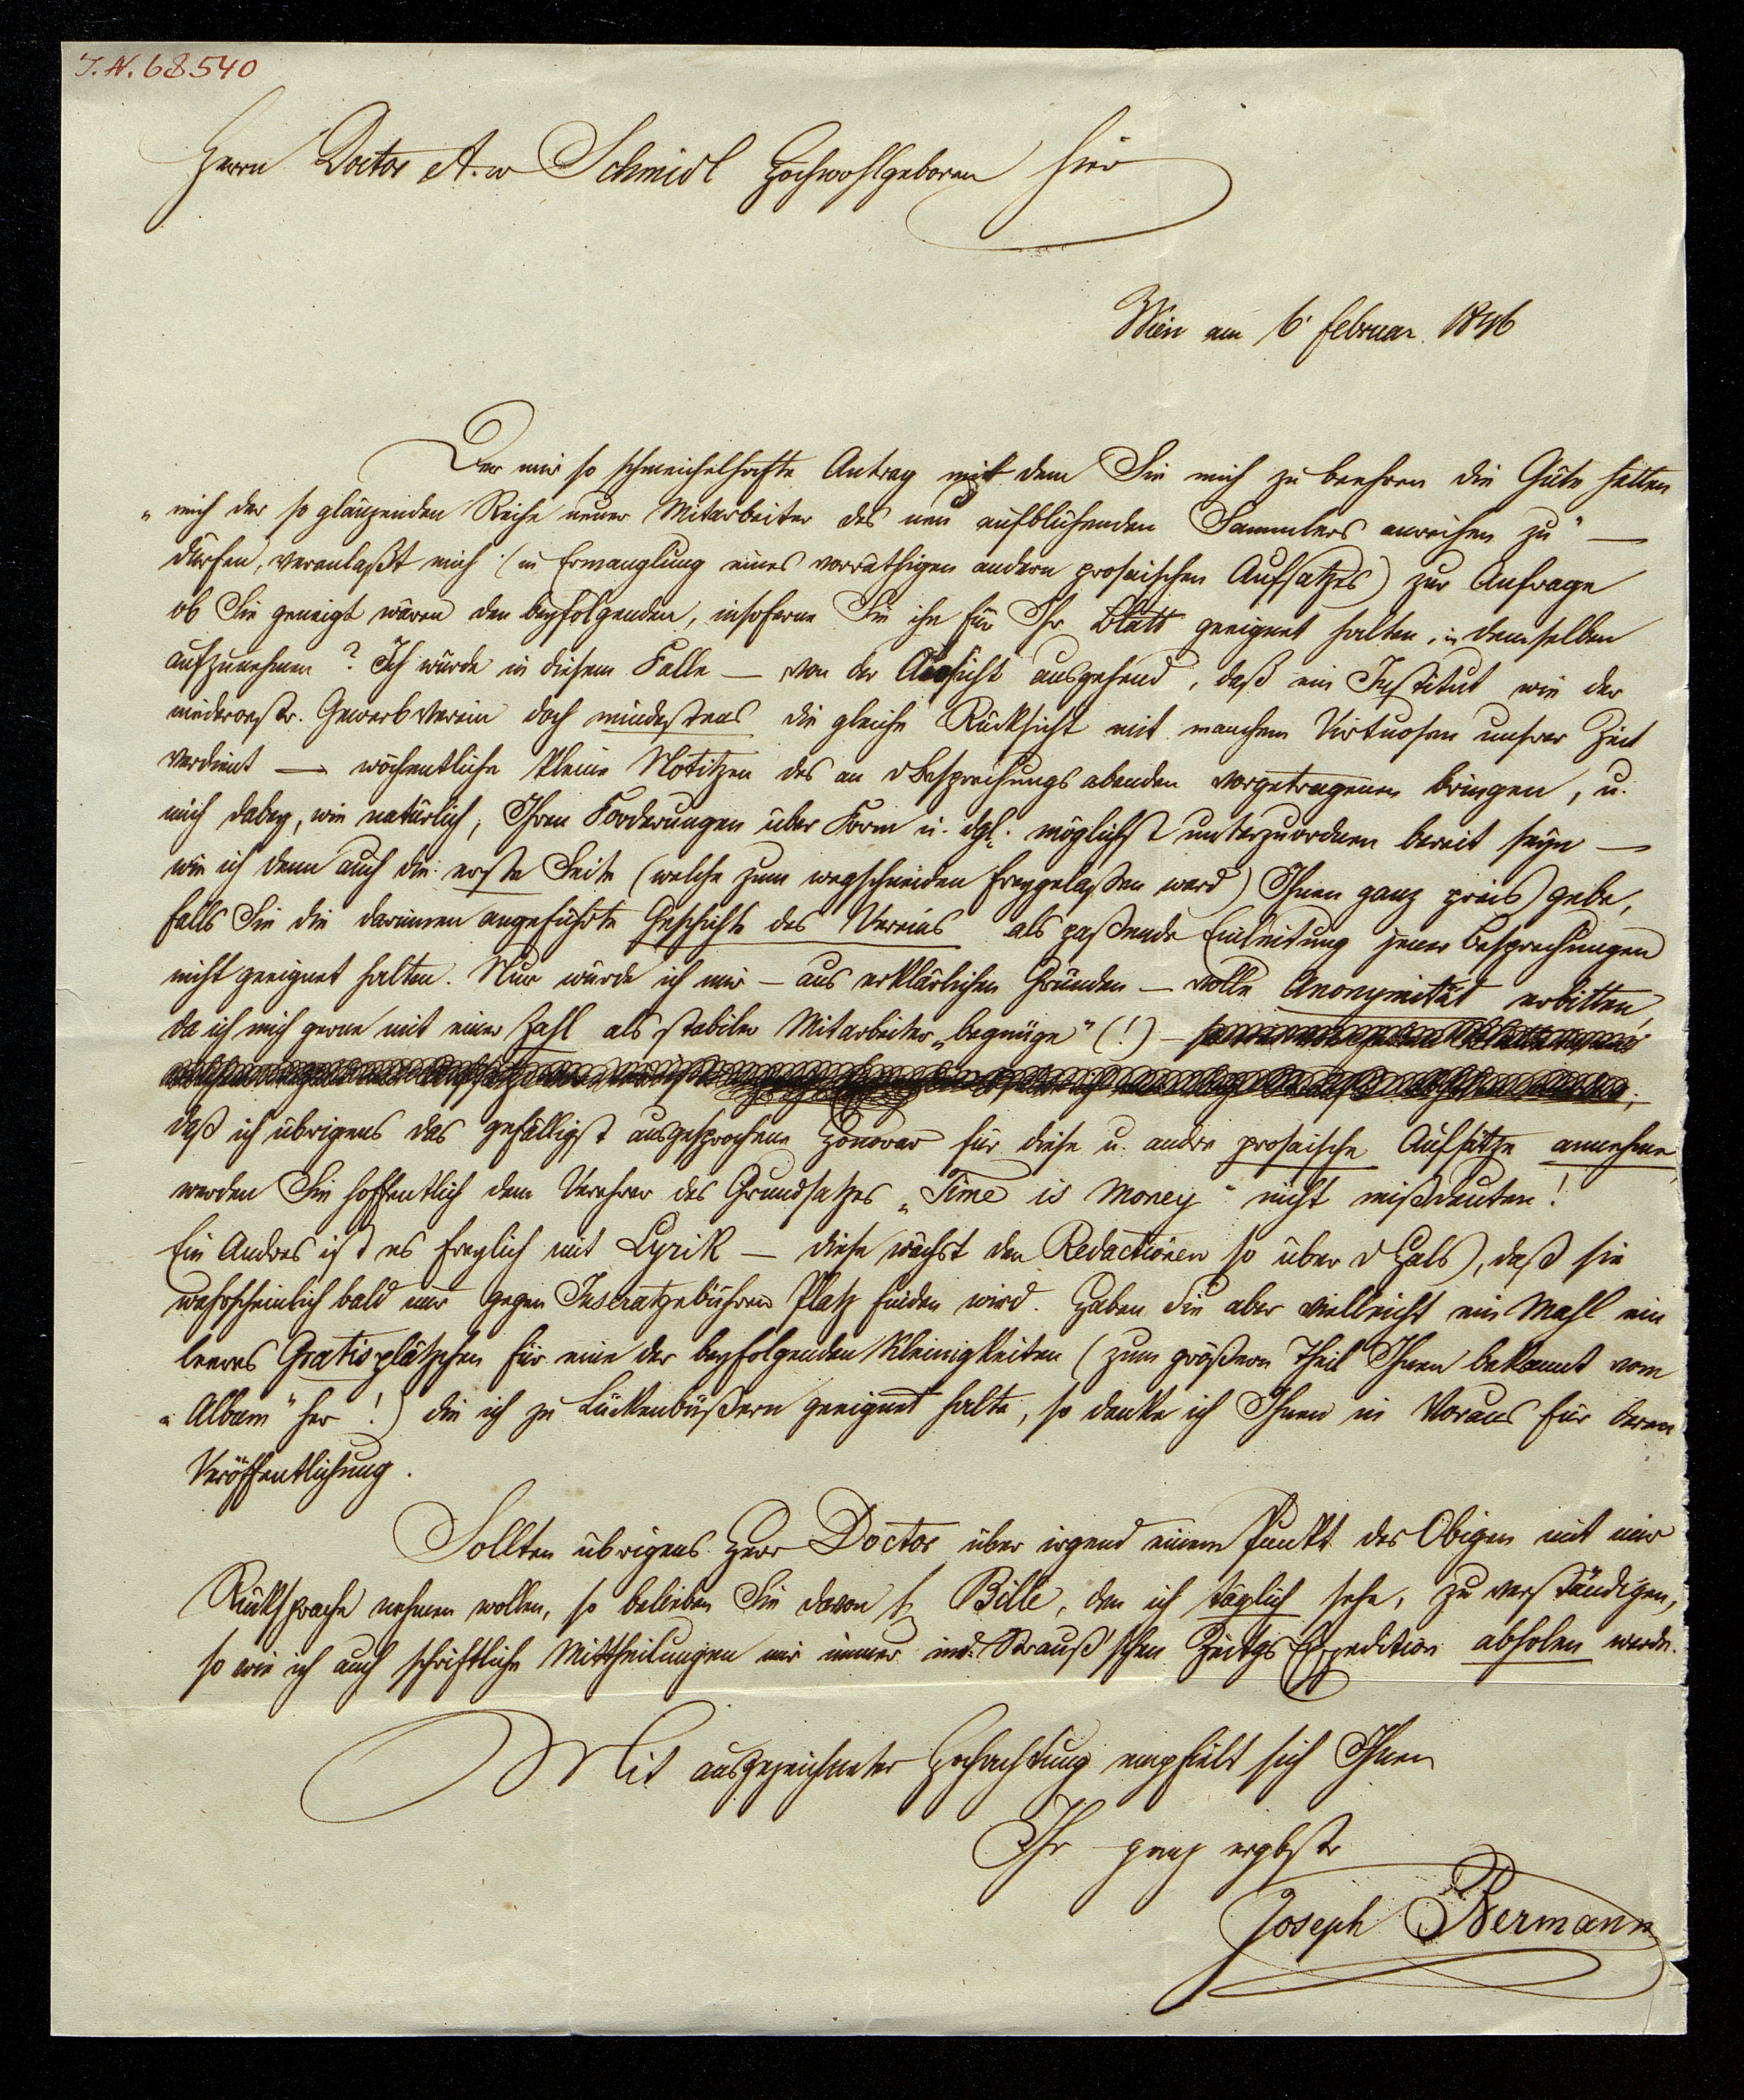 J. N. 68540
Herrn Doctor A. v Schmidl Hochwohlgeboren hier
Wien am 6' Februar 1846
Der mir so schmeichelhafte Antrag mit dem Sie mich zu beehren die Güte hatten
„mich der so glänzenden Reihe neuer Mitarbeiter des neu aufblühenden Sammlers anreihen zu" —
dürfen, veranlaßt mich (in Ermanglung eines vorräthigen andern prosaischen Aufsatzes) zur Anfrage
ob Sie geneigt wären den beyfolgenden, insoferne Sie ihn für Ihr Blatt geeignet halten, in demselben
aufzunehmen? Ich würde in diesem Falle — von der Ansicht ausgehend, daß ein Institut wie der
niederoestr. Gewerbverein doch mindestens die gleiche Rücksicht mit manchem Virtuosen unsrer Zeit
verdient — wöchentliche kleine Notitzen des an d Besprechungsabenden vorgetragenen bringen, u.
mich dabey, wie natürlich, Ihren Forderungen über Form u. dgl. möglichst unterzuordnen bereit seyn —
wie ich denn auch die erste Seite (welche zum wegschneiden freygelaßen ward) Ihnen ganz preis gebe,
falls Sie die darinnen angeführte Geschichte des Vereins als paßende Einleitung jener Besprechungen
nicht geeignet halten. Nur würde ich mir — aus erklärlichen Gründen — volle Anonymität erbitten,
da ich mich gerne mit einer Zahl als stabiler Mitarbeiter „begnüge" (!) —
daß ich übrigens das gefälligst ausgesprochene Honorar für diese u. andre prosaische Aufsätze annehme,
werden Sie hoffentlich dem Verehrer des Grundsatzes „Time is Money" nicht mißdeuten!
Ein Andres ist es freylich mit Lyrik — diese wächst den Redactionen so über d Hals, daß sie
wahrscheinlich bald nur gegen Inseratgebühren Platz finden wird. Haben Sie aber vielleicht ein Mahl ein
leeres Gratisplätzchen für eine der beyfolgenden Kleinigkeiten (zum größern Theil Ihnen bekannt vom
„Album" her!) die ich zu Lückenbüßern geeignet halte, so danke ich Ihnen im Voraus für deren
Veröffentlichung.
Sollten übrigens Herr Doctor über irgend einem Punkt des Obigen mit mir
Rücksprache nehmen wollen, so belieben Sie davon H Bille, den ich täglich sehe, zu verständigen,
so wie ich auch schriftliche Mittheilungen mir immer in d. Strauß'schen Zeitgs Expedition abholen werde.
Mit ausgezeichneter Hochachtung empfielt sich Ihnen
Ihr ganz ergbstr
Joseph Bermann